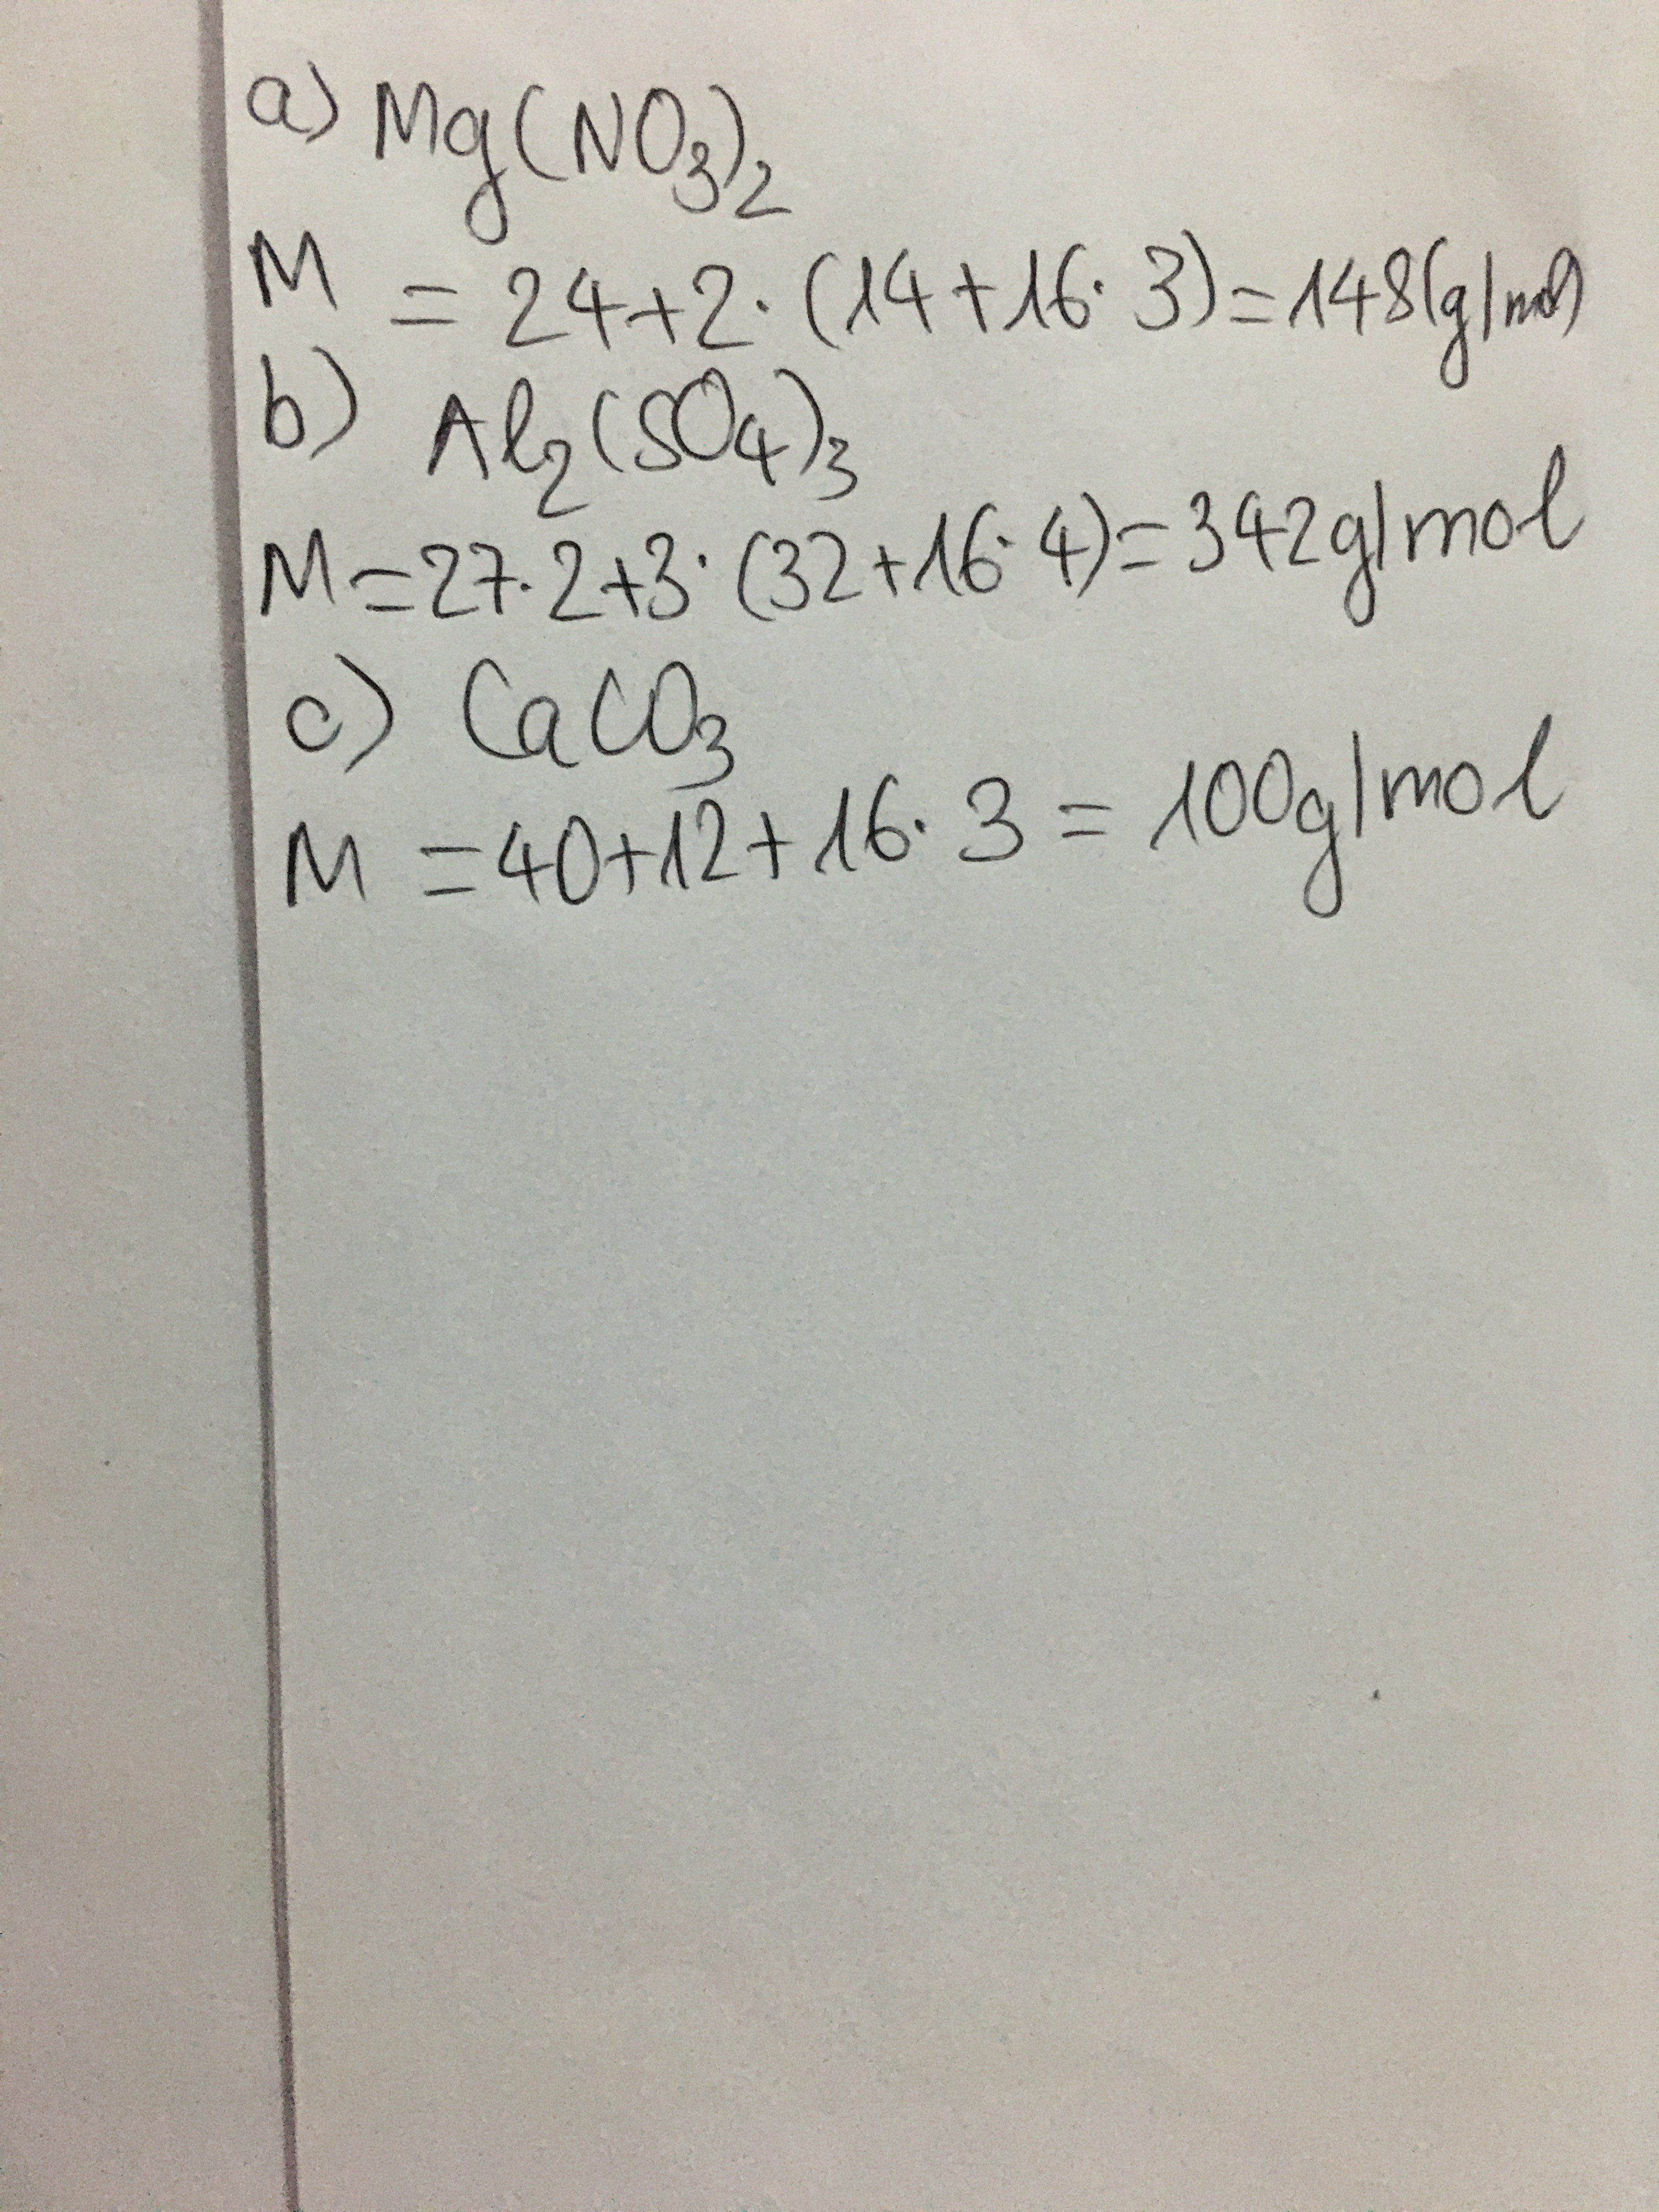 a) Mg(NO₃)₂
M = 24+2·(14+16·3)=148(g/mol)
b) Al₂(SO₄)₃
M=27·2+3·(32+16·4)=342g/mol
c) CaCO₃
M =40+12+16·3 = 100g/mol